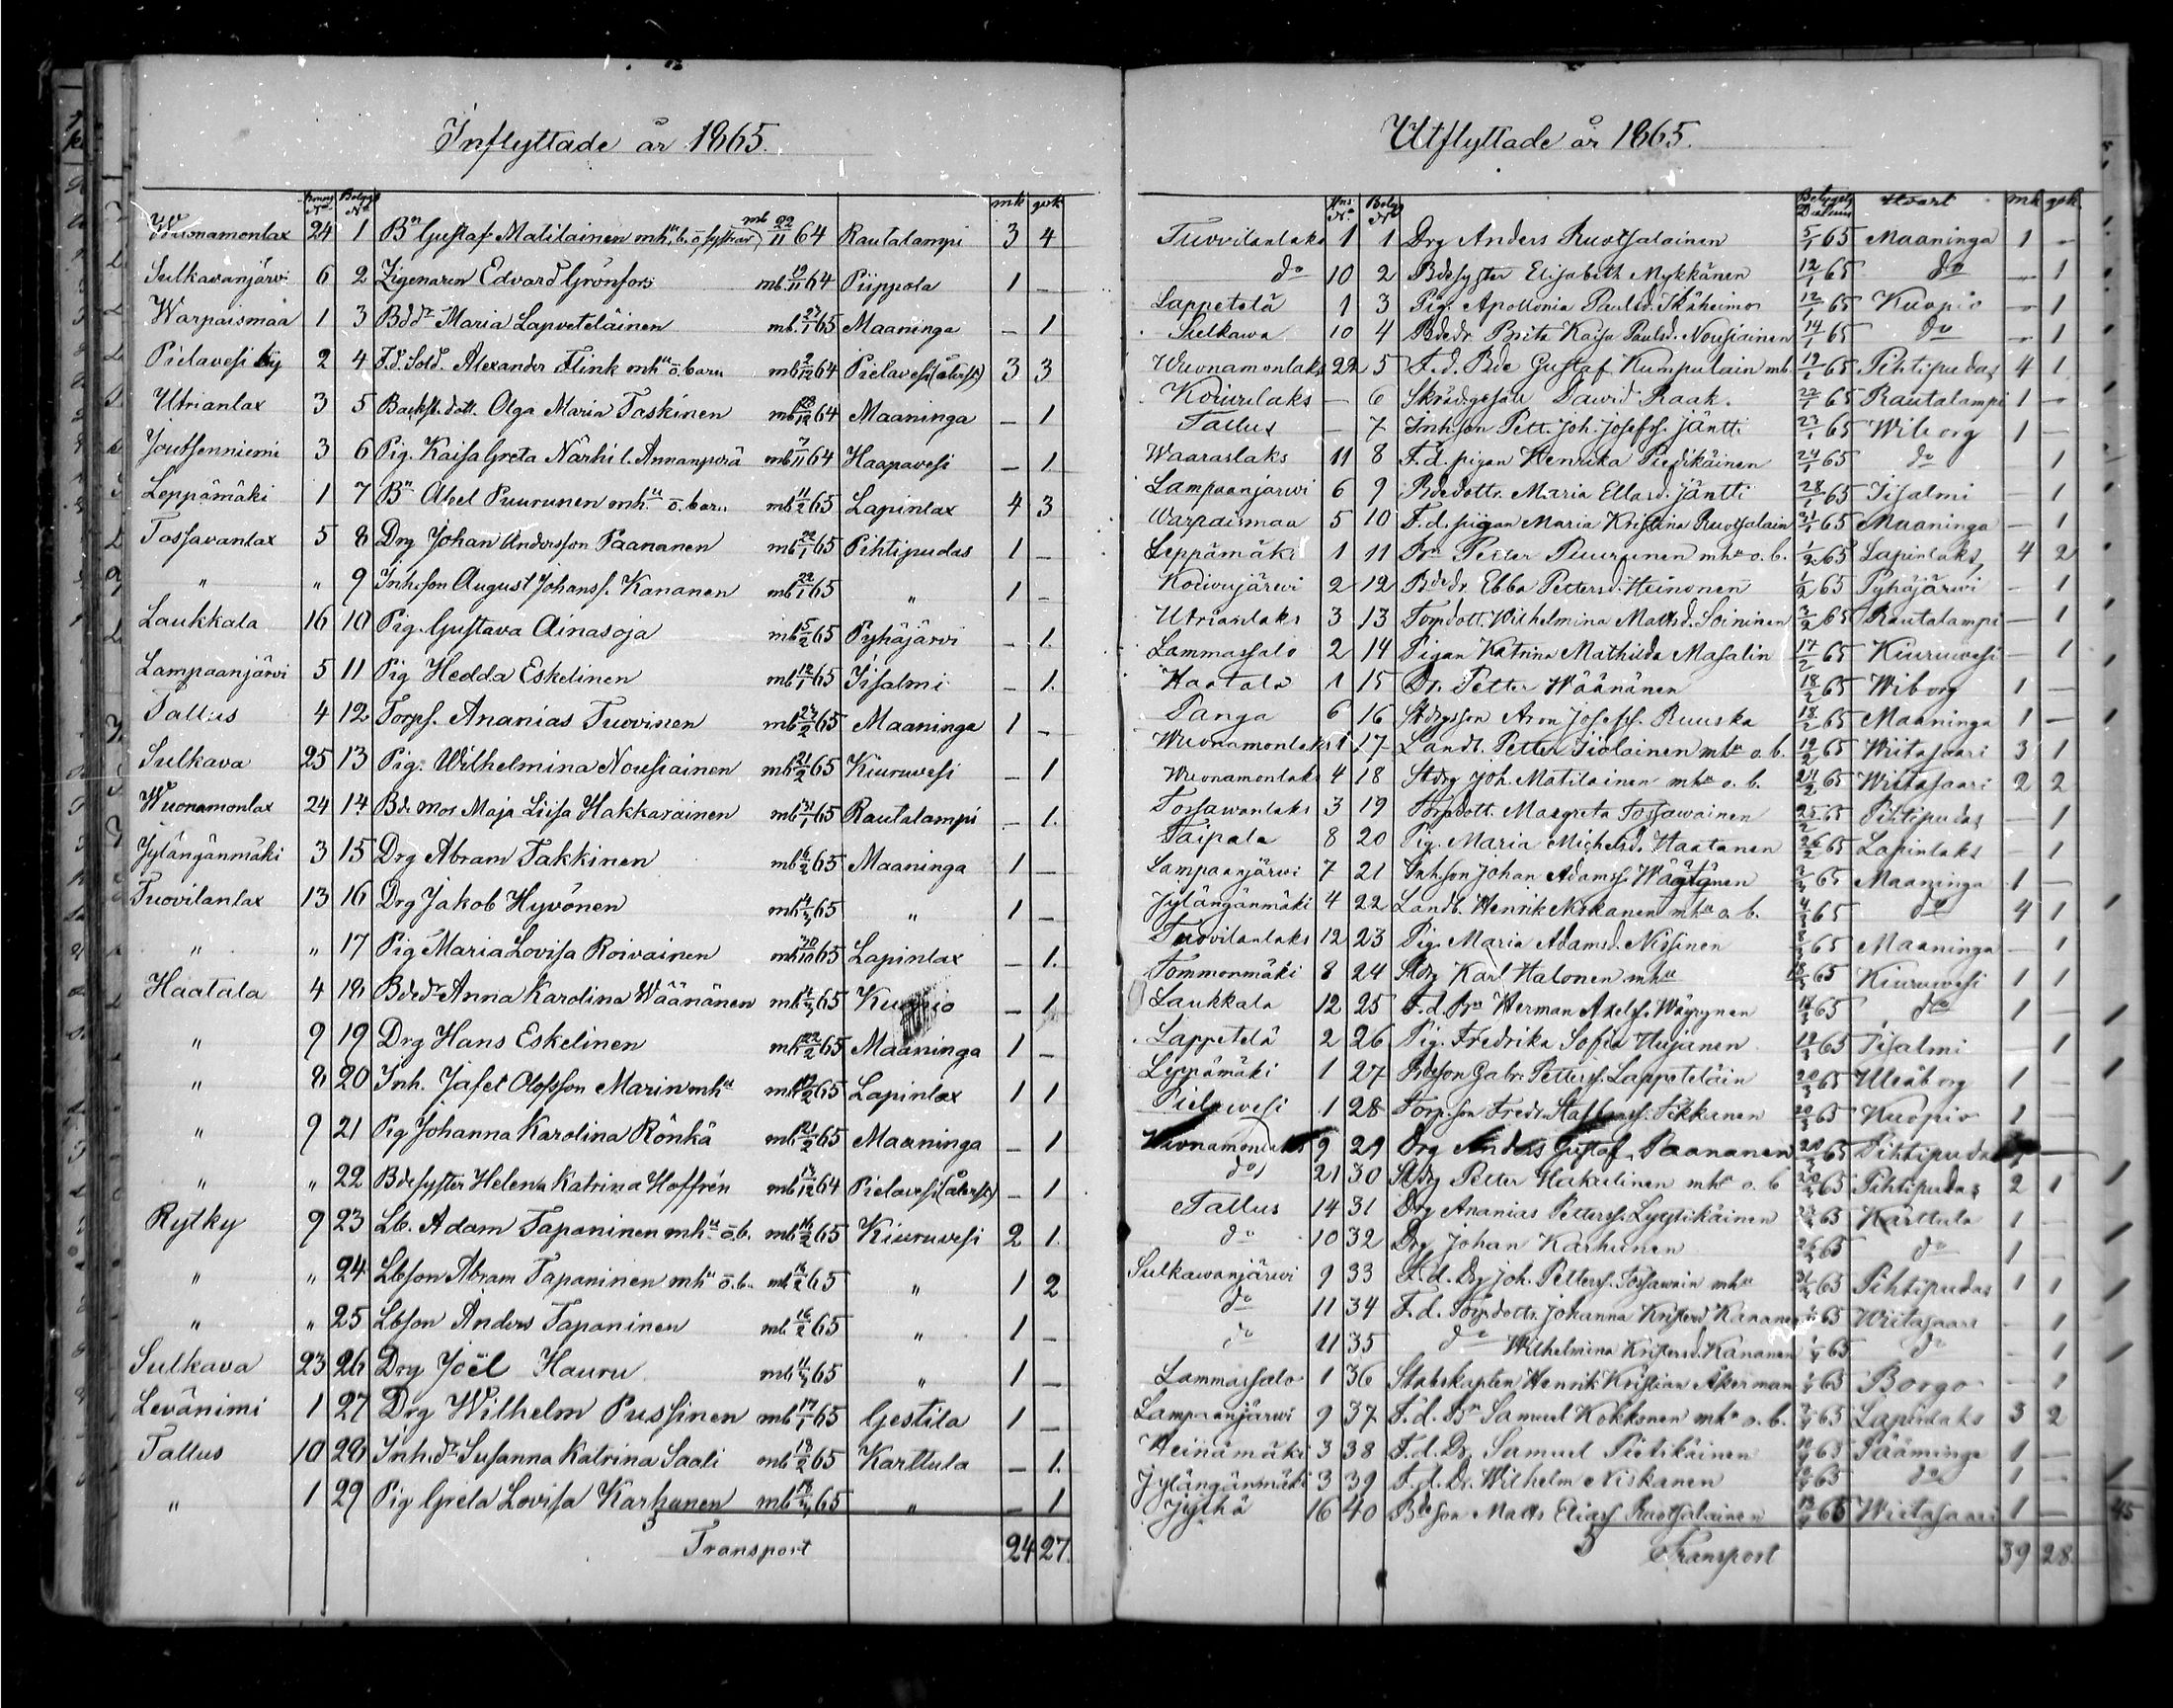 Inflyttade år 1865.
mk qvk
Wuonamonlax 24 1 Bn Gustaf Matilainen mhu, b. o. systrar mb 22/11 64 Rautalampi 3 4
Sulkavanjärvi 6 2 Zigenaren Edvard Grönfors mb 19/11 64 Piippola 1 –
Warpaismaa 1 3 Bddr Maria Lapveteläinen mb. 27/1 65 Maaninga – 1
Pielavesi by 2 4 F.d. Sold. Alexander Flink mhu o. barn mb 2/12 64 Pielavesi (återst) 3 3
Utrianlax 3 5 Backst. dott. Olga Maria Toskinen mb 12 64 Maaninga – 1
Joutsenniemi 3 6 Pig. Kaisa Greta Närhi l. Annanperä mb 7/11 64 Haapavesi – 1
Leppämäki 1 7 Bn Abel Puurunen mhu o. barn mb 11/2 65 Lapinlax 4 3
Tossavanlax 5 8 Drg Johan Andersson Paananen mb 22/1 65 Pihtipudas 1 –
" " 9 Inh.son August Johanss. Kananen mb 22/1 65 " 1 –
Laukkala 16 10 Pig. Gustava Ainasoja mb 5/2 65 Pyhäjärvi – 1.
Lampaanjärvi 5 11 Pig Hedda Eskelinen mb 12/1 65 Iisalmi – 1.
Tallus 4 12 Torps. Ananias Tuovinen mb 23/2 65 Maaninga 1 –
Sulkava 25 13 Pig. Wilhelmina Nousiainen mb 21/2 65 Kiuruvesi – 1
Wuonamonlax 24 14 Bde mor Maja Liisa Hakkarainen mb 31/1 65 Rautalampi – 1.
Jylängänmäki 3 15 Drg Abram Takkinen mb 16/2 65 Maaninga 1 –
Tuovilanlax 13 16 Drg Jakob Hyvönen mb 4/3 65 " 1 –
" " 17 Pig Maria Lovisa Roivainen mb 65 Lapinlax – 1.
Haatala 4 18 Bdedr Anna Karolina Wäänänen mb 4/3 65 Kuopio – 1
" 9 19 Drg Hans Eskelinen mb 22/2 65 Maaninga 1 –
" 8 20 Inh. Jafet Olofsson Marin mhu mb 65 Lapinlax 1 1
" 9 21 Pig Johanna Karolina Rönkä mb 21/2 65 Maaninga – 1
" " 22 Bdesyster Helena Katrina Hoffrén mb 13/12 64 Pielavesi (återst) – 1
Rytky 9 23 Lb. Adam Tapaninen mhu o. b. mb 16/2 65 Kiuruvesi 2 1.
" " 24 Lbson Abram Tapaninen mhu o. b. mb 16/2 65 " 1 2
" " 25 Lbson Anders Tapaninen mb 16/2 65 " 1 –
Sulkava 23 26 Drg Joël Hauru mb 11/3 65 " 1 –
Levänimi 1 27 Drg Wilhelm Pussinen mb 17/1 65 Gestila 1 –
Tallus 10 28 Inh.dr Susanna Katrina Saali mb 18/2 65 Karttula – 1.
" 1 29 Pig Greta Lovisa Karhunen mb 18/3 65 " – 1
Transport 24 27.
Utflyttade år 1865.
Hvart mk qvk
Tuovilanlaks 1 1 Drg Anders Ruotsalainen 5/1 65 Maaninga 1 –
do 10 2 Bdesyster Elisabeth Mykkänen 12/1 65 do – 1
Lappetelä 1 3 Pig. Apollonia Paulsd. Ikäheimo 12/1 65 Kuopio – 1
Sulkawa 10 4 Bdedr. Brita Kaisa Paulsd. Nousiainen 14/1 65 do – 1
Wuonamonlaks 22 5 F.d. Bde Gustaf Kumpulain mb. 19/1 65 Pihtipudas 4 1
Koivulaks – 6 Skräd.gesäll Dawid Raak. 22/1 65 Rautalampi 1 –
Tallus – 7 Inhson Pett. Joh. Josefss. Jäntti 23/1 65 Wiborg 1 –
Waaraslaks 11 8 F.d. pigan Henrika Piedikäinen 24/1 65 do 1
Lampaanjärwi 6 9 Bdedottr. Maria Ellasd. Jäntti 28/1 65 Iisalmi – 1
Warpaismaa 5 10 F.d. pigan Maria Kristina Ruotsalain 31/1 65 Maaninga – 1
Leppämäki 1 11 Bn Petter Puurunen mhu o. b. 1/2 65 Lapinlaks 4 2
Koivujärwi 2 12 Bdedr. Ebba Pettersd. Heinonen 1/2 65 Pyhäjärwi – 1
Utrianlaks 3 13 Torpdott. Wilhelmina Mattsd. Soininen 3/2 65 Rautalampi – 1
Lammassalo 2 14 Pigan Katrina Mathilda Masalin 17/2 65 Kiuruwesi – 1
Haatala 1 15 Dr. Petter Wäänänen 18/2 65 Wiborg 1 –
Panga 6 16 Stdrgsson Aron Josefss. Ruuska 18/2 65 Maaninga 1 –
Wuonamonlaks 1 17 Landb. Petter Iiolainen mhu o. b. 19/2 65 Wiitasaari 3 1
Wuonamonlaks 4 18 Stdrg Joh. Matilainen mhu o. b. 24/2 65 Wiitasaari 2 2
Tossawanlaks 3 19 Torpdott. Margreta Tossawainen 25/2 65 Pihtipudas – 1
Taipale 8 20 Pig. Maria Michelsd. Haatanen 26/2 65 Lapinlaks – 1
Lampaanjärwi 7 21 Inhson Johan Adamss. 3/3 65 Maaninga 1 –
Jylängänmäki 4 22 Landb. Henrik Niskanen mhu o. b. 4/3 65 do 4 1
Tuovilanlaks 12 23 Pig. Maria Adamsd. Nissinen 8/3 65 Maaninga – 1
Tommonmäki 8 24 Stdrg Karl Halonen mhu 65 Kiuruwesi 1 1
Laukkala 12 25 F.d. Bn Herman Axelss. Wäyrynen 18/3 65 do 1 –
Lappetelä 2 26 Pig. Fredrika Sofia Hujanen 19/3 65 Iisalmi 1
Leppämäki 1 27 Bdeson Gabr. Petterss. Lappeteläin 20/3 65 Uleåborg 1 –
Pielawesi 1 28 Torpson Fredr. Staffanss. Tikkanen 20/3 65 Kuopio 1 –
Wuonamonlaks 9 29 Drg Anders Gustaf Paananen 20/3 65 Pihtipudas –
do 21 30 Stdrg Petter Hakulinen mhu o. b 65 Pihtipudas 2 1
Tallus 14 31 Drg Ananias Petterss. Lyytikäinen 65 Karttula 1 –
do 10 32 Drg Johan Karhunen 26/3 65 do 1 –
Sulkawanjärwi 9 33 F.d. Drg Joh. Petterss. Tossawain mhu 31/3 65 Pihtipudas 1 1
do 11 34 F.d. Torpdottr. Johanna Kristersd Kananen 65 Wiitasaari – 1
do 11 35 do Wilhelmina Kristersd. Kananen 65 do – 1
Lammassalo 1 36 Stabskapten Henrik Kristian Åkerman 65 Borgo – 1
Lampaanjärwi 9 37 F.d. Bn Samuel Kokkonen mhu o. b. 65 Lapinlaks 3 2
Heinämäki 3 38 F.d. Dr. Samuel Pietikäinen 65 Sääminge 1 –
Jylängänmäki 3 39 F.d. Dr. Wilhelm Niskanen 65 do 1 –
Jylhä 16 40 Bdeson Matts Eliass Ruotsalainen 65 Wiitasaari 1 –
Transport 39 28
45